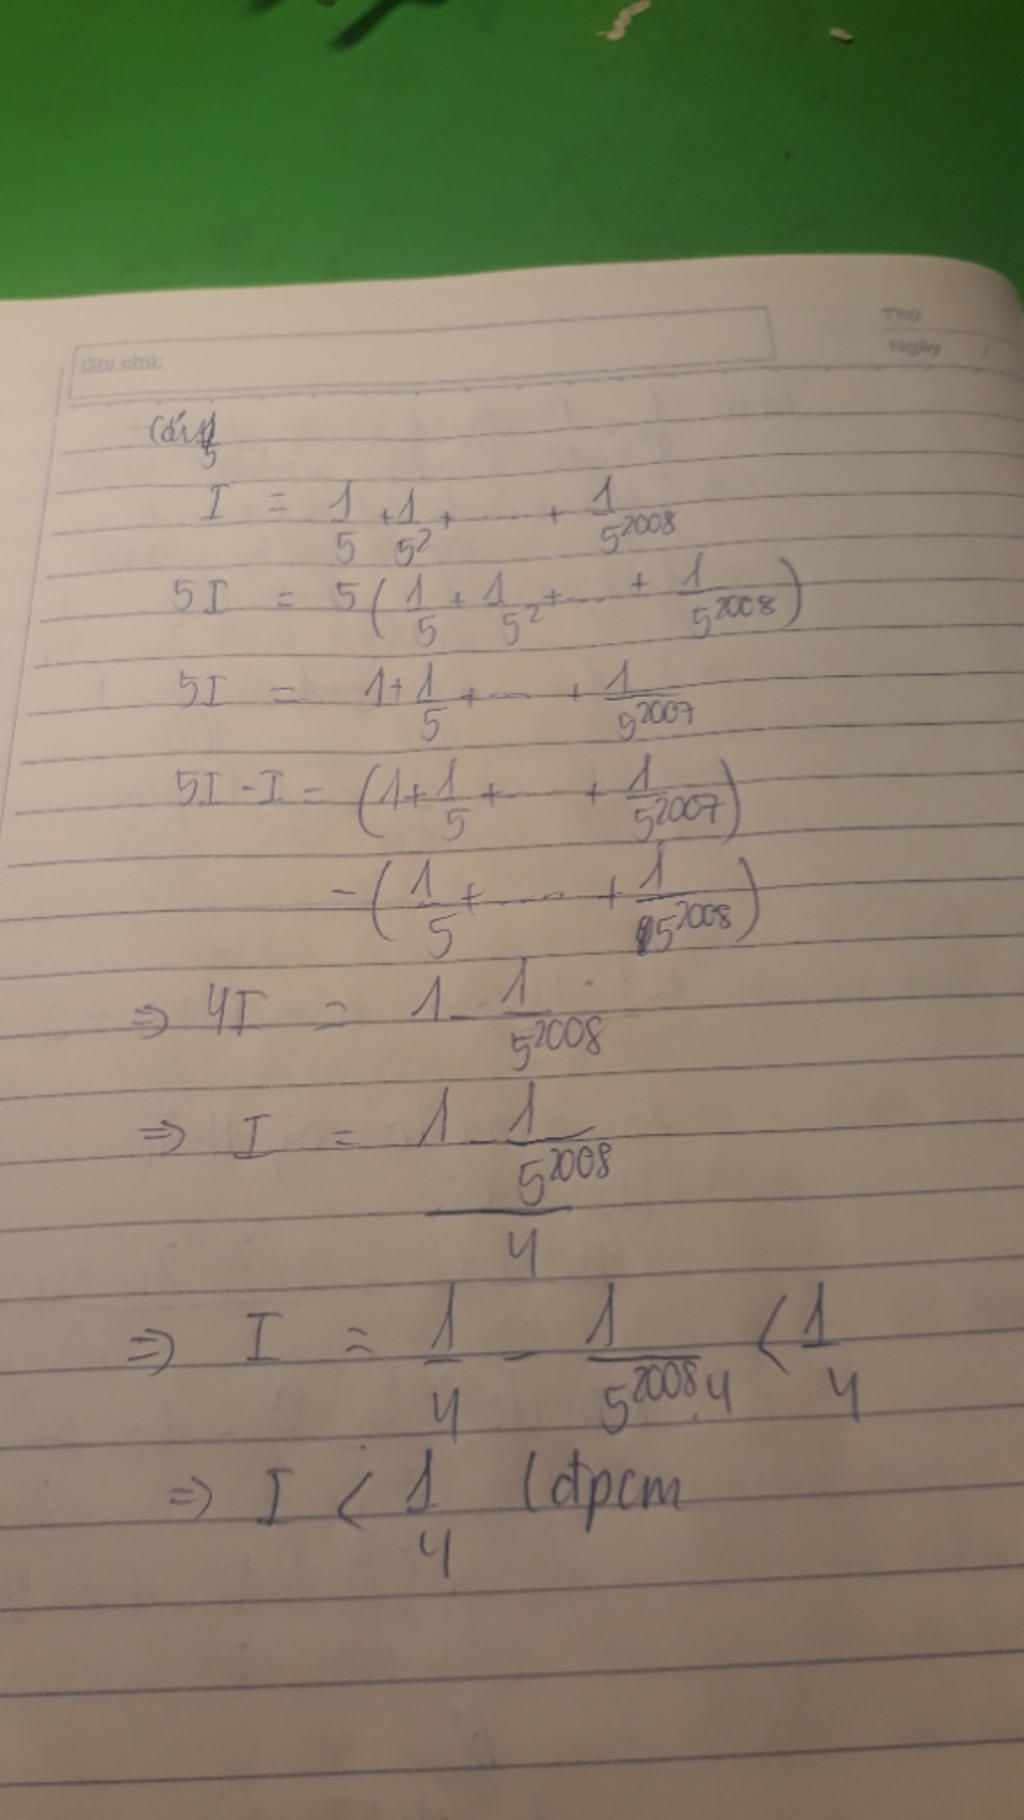 Thứ
Ghi chú:
Ngày /
I = 1/5 + 1/5² + ..... + 1/5²⁰⁰⁸
5I = 5(1/5 + 1/5² + .... + 1/5²⁰⁰⁸)
5I = 1 + 1/5 + .... + 1/5²⁰⁰⁷
5I - I = (1 + 1/5 + ..... + 1/5²⁰⁰⁷)
- (1/5 + ..... + 1/5²⁰⁰⁸)
⇒ 4I = 1 - 1/5²⁰⁰⁸
⇒ I = (1 - 1/5²⁰⁰⁸)/4
⇒ I = 1/4 - 1/5²⁰⁰⁸.4 < 1/4
⇒ I < 1/4 (đpcm